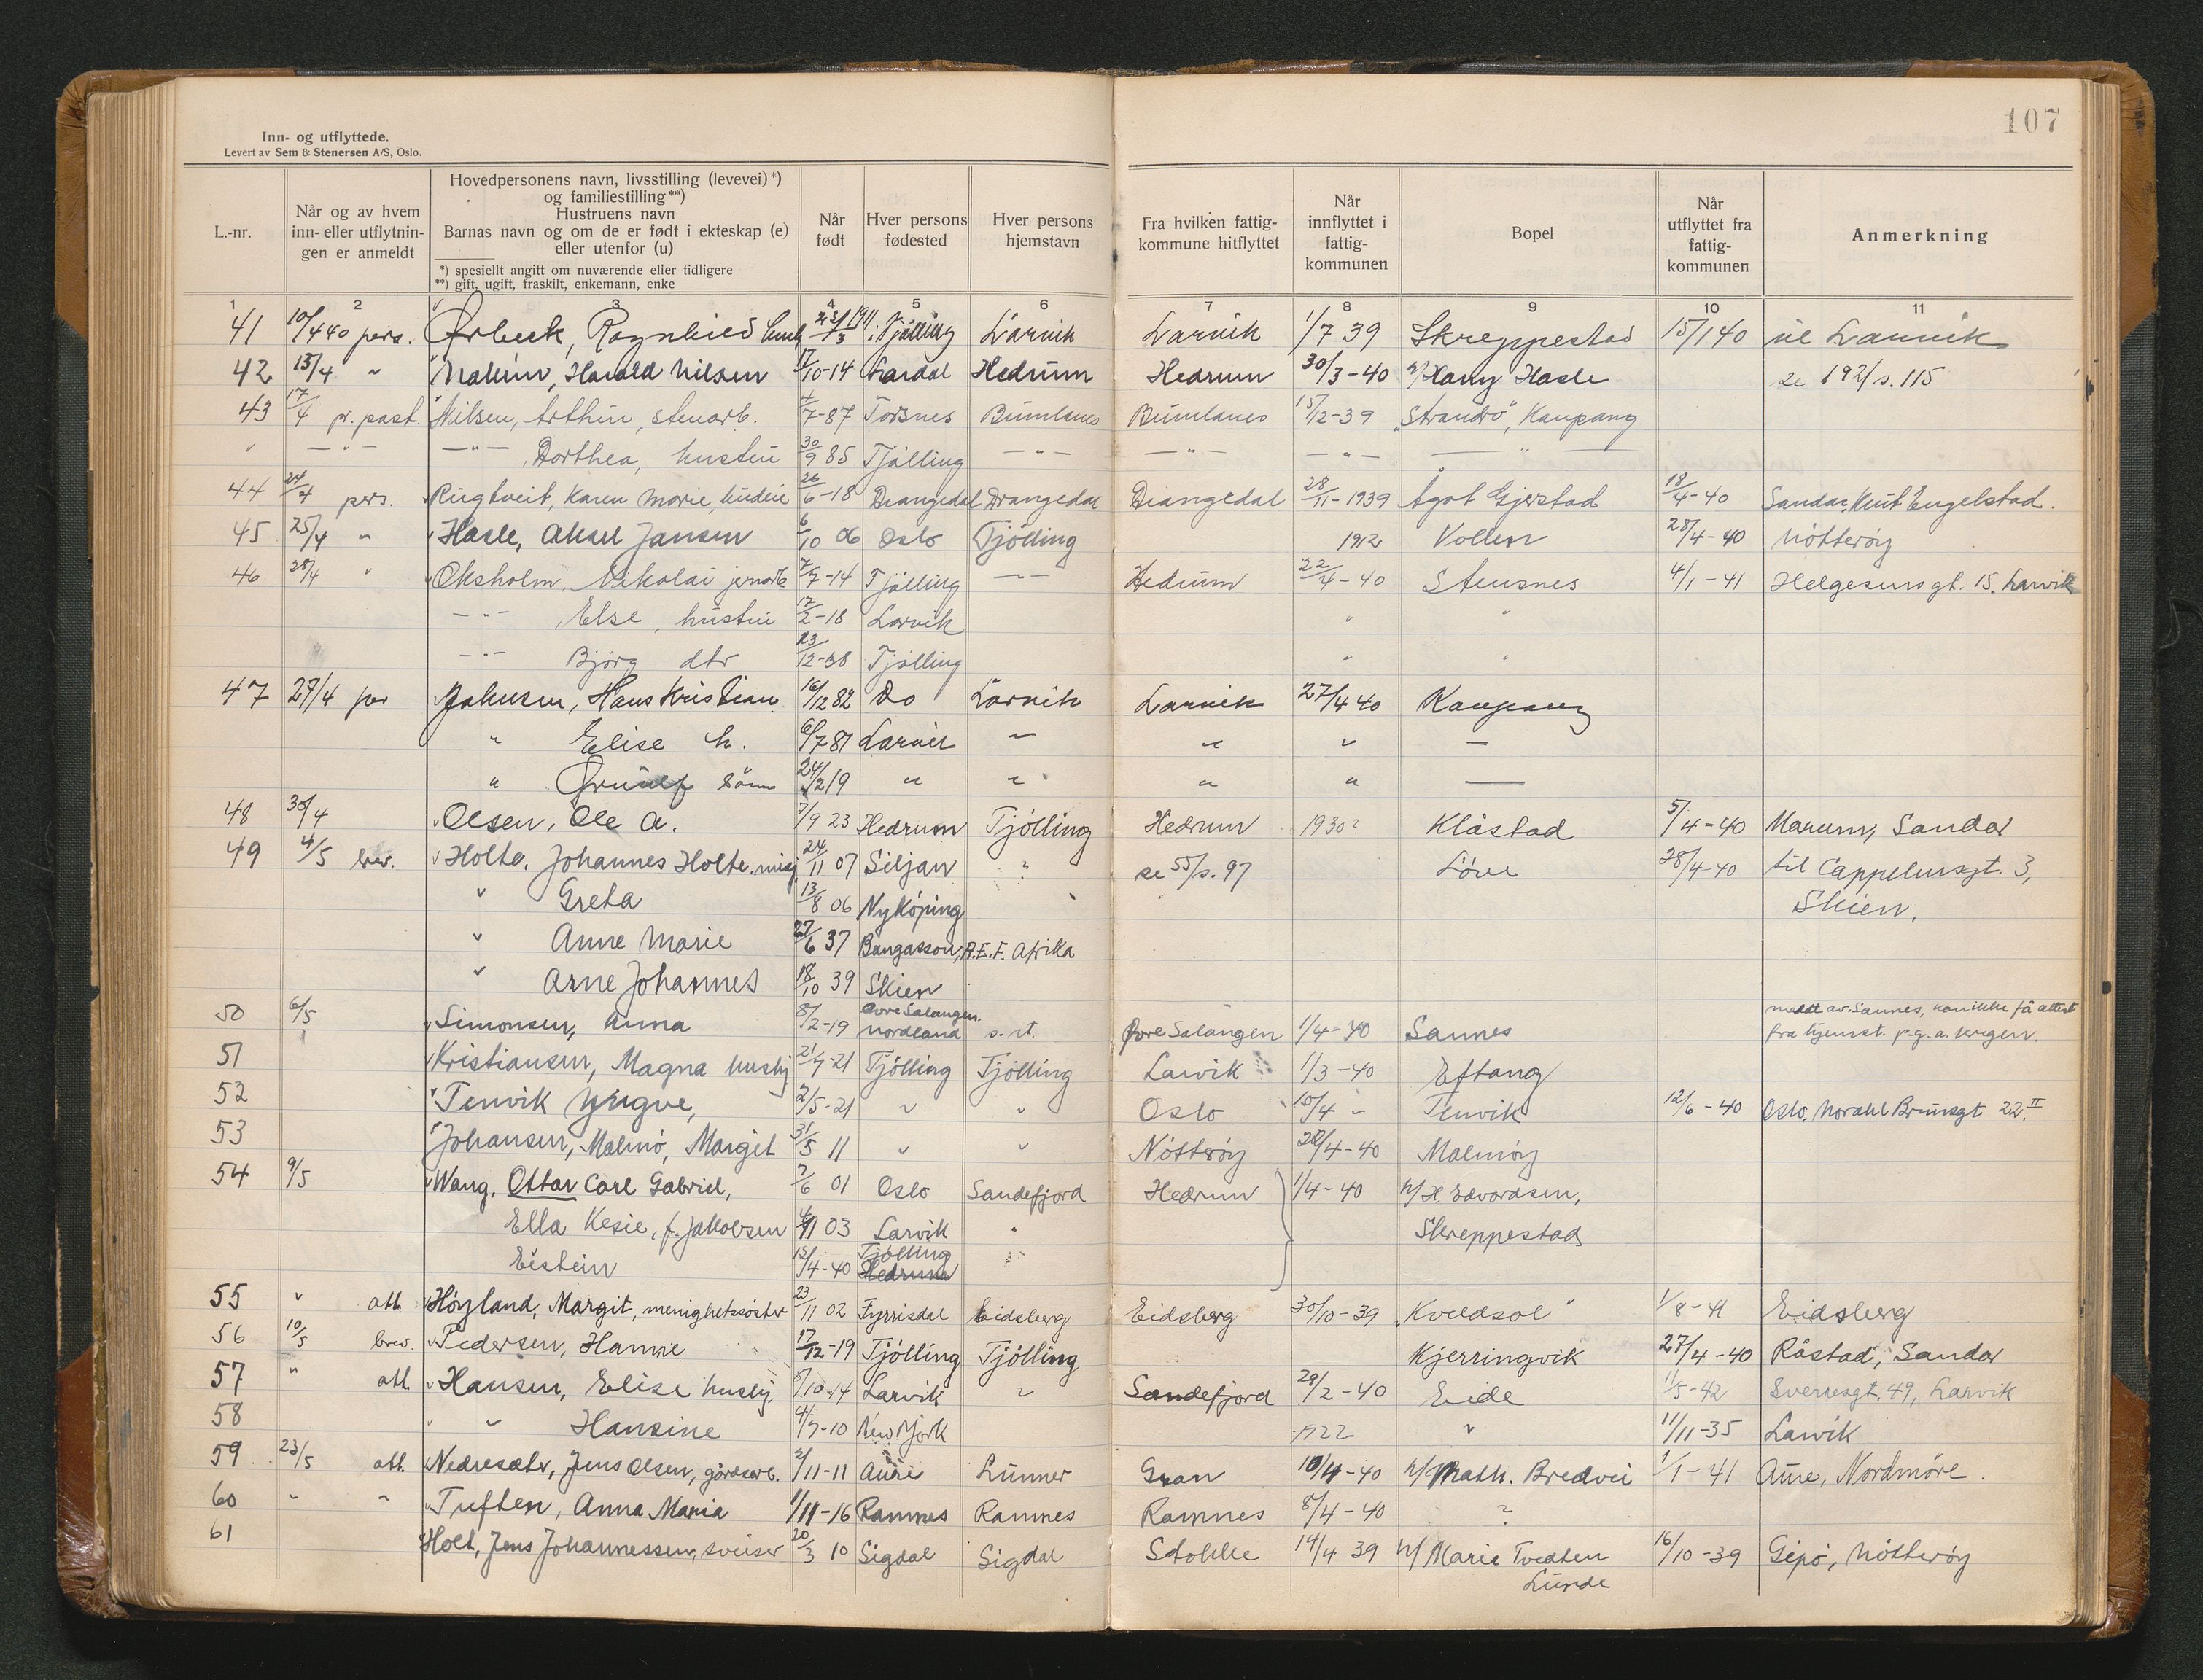 107
Inn- og utflyttede.
Levert av Sem & Stenersen A/S, Oslo.
L.-nr.
Når og av hvem inn- eller utflytnin-gen er anmeldt
Hovedpersonens navn, livsstilling (levevei) *) og familiestilling **)
Hustruens navn
Barnas navn og om de er født i ekteskap (e) eller utenfor (u)
*) spesiellt angitt om nuværende eller tidligere
**) gift, ugift, fraskilt, enkemann, enke
Når født
Hver persons fødested
Hver persons hjemstavn
Fra hvilken fattig-kommune hitflyttet
Når innflyttet i fattig-kommunen
Bopel
Når utflyttet fra fattig-kommunen
Anmerkning
1 2 3 4 5 6 7 8 9 10 11
41 10/4 40 pers. Ørbeck, Ragnhild 1911 Tjølling Larvik Larvik 1/7 39 Skreppestad 15/1 40 Larvik
42 13/4 " Harald Nilsen 17/10-14 Lardal Hedrum Hedrum 30/3-40 h/ Hasle se 192/s. 115
43 17/4 pr. post. Nilsen, Arthur, stenarb. 7-87 Torsnes Bumlanes Bumlanes 15/12-39 "Strandro", Kaupang
" -"- -"- Dorthea, hustru 30/9 85 Tjølling -"- -"- -"- -"-
44 24/4 pers. Rugtveit, Karen Marie, 26/6-18 Drangedal Drangedal Drangedal 28/11-1939 Ågot Gjerstad 18/4-40 Sandar, Knut Engelstad.
45 25/4 " Hasle, Aksel Jansen 6/10 06 Oslo Tjølling 1912 Vollen 28/4-40 Nøtterøy
46 28/4 " Oksholm, Nikolai jernarb 7/7-14 Tjølling -"- Hedrum 22/4-40 Stusnes 4/1-41 Helgesensgt. 15, Larvik
-"- Else, hustru 17/2-18 Larvik " "
-"- Bjørg dtr 23/12-38 Tjølling " "
47 27/4 per Johnsen, Hans Kristian 16/12 82 Do Larvik Larvik 27/4 40 Kaupang
" Elise h. 6/7 81 Larvik " " " —
" sønn 24/2 19 " " " " —
48 30/4 Olsen, Ole A. 7/9 23 Hedrum Tjølling Hedrum 1930? Klåstad 5/4-40 Marum, Sandar
49 4/5 brev. Holte, Johannes Holte. misj 24/11 07 Siljan " se 55/s. 97 Løve 28/4-40 til Cappelensgt. 3,
" Greta 13/8 06 Nykøping " Skien.
" Anne Marie 27/6 37 Bangasson, A.E.F. Afrika
" Arne Johannes 18/10 39 Skien
50 6/5 Simonsen, Anna 8/2-19 Øvre Salangen. Nordland s. st. Øvre Salangen 1/4-40 Sannes meldt av Sannes, kan ikke få attest
fra hjemst. p.g.a. krigen.
51 Kristiansen, Magna hushj 21/7-21 Tjølling Tjølling Larvik 1/3-40 Eftang
52 Tenvik Yngve, 2/5-21 " " Oslo 10/4 - Tenvik 12/6-40 Oslo, Nordahl Brunsgt 22 II
53 Johansen, Malmø, Margit 31/5 11 " " Nøtterøy 28/4-40 Malmøy
54 9/5 Wang, Ottar Carl Gabriel, 7/6 01 Oslo Sandefjord Hedrum 1/4-40 h/H Edvardsen,
Ella Kesie, f. Jakobsen 4/11 03 Larvik " Skreppestad
Eistein 13/4-40 Tjølling Hedrum "
55 " att. Høyland, Margit, menighetssøster 23/11 02 Fyrrisdal Eidsberg Eidsberg 30/10-39 "Kveldsol" 1/8-41 Eidsberg
56 10/5 brev. Pedersen, Hanne 17/12-19 Tjølling Tjølling Kjerringvik 27/4-40 Råstad, Sandar
57 " att. Hansen, Elise hushj. 8/10-14 Larvik " Sandefjord 29/2-40 Eide 11/5-42 Sverresgt. 49, Larvik
58 " " Hansine 4/7-10 New York 1922 " 11/11-35 Larvik
59 23/5 att. Nedresæter, Jens Olsen, gårdsarb. 2/11-11 Aure Lunner Gran 10/4-40 h/Math. Bredvei 1/1-41 Aure, Nordmøre.
60 " " Tuften, Anna Maria 1/11-16 Ramnes Ramnes Ramnes 8/4-40 ?
61 Holt, Jens Johannessen, sveiser 20/3 10 Sigdal Sigdal Stokke 14/4 39 h/Marie Tvedten 16/10-39 Gipø, Nøtterøy
Lunde